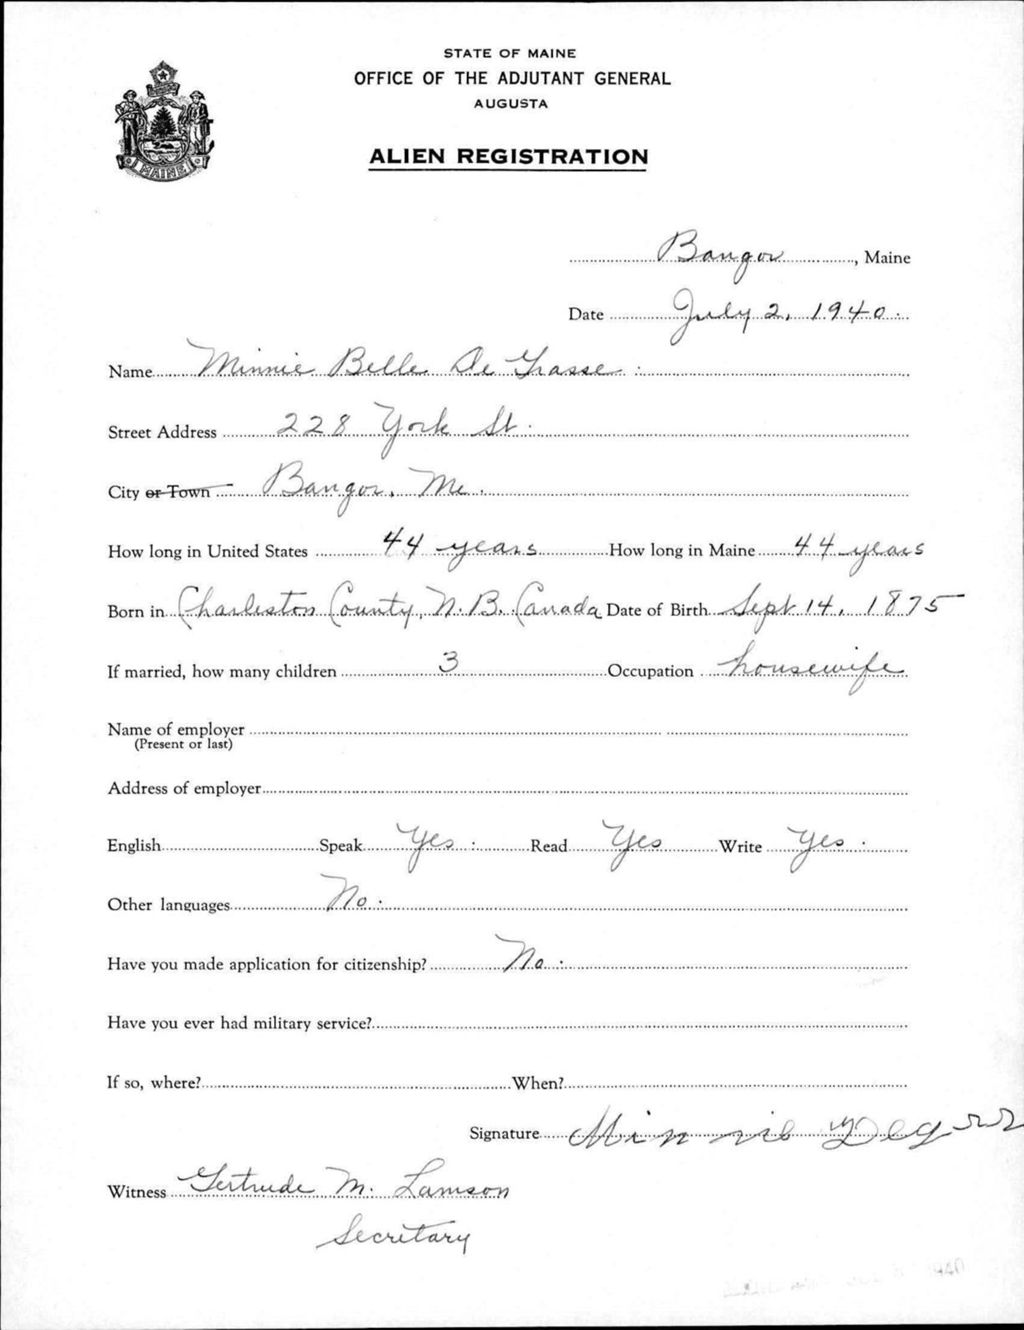 STATE OF MAINE
OFFICE OF THE ADJUTANT GENERAL
AUGUSTA
ALIEN REGISTRATION
MAINE
Bangor, Maine
Date July 2, 1940.
Name Minnie Belle De Grasse.
Street Address 228 York St.
City or Town Bangor, Me.
How long in United States 44 years How long in Maine 44 years
Born in Charleston County, N. B. Canada Date of Birth Sept 14, 1875
If married, how many children 3 Occupation housewife
Name of employer
(Present or last)
Address of employer
English Speak Yes. Read Yes Write Yes.
Other languages No.
Have you made application for citizenship? No.
Have you ever had military service?
If so, where? When?
Signature Minnie
Witness Gertrude M. Lamson
Secretary